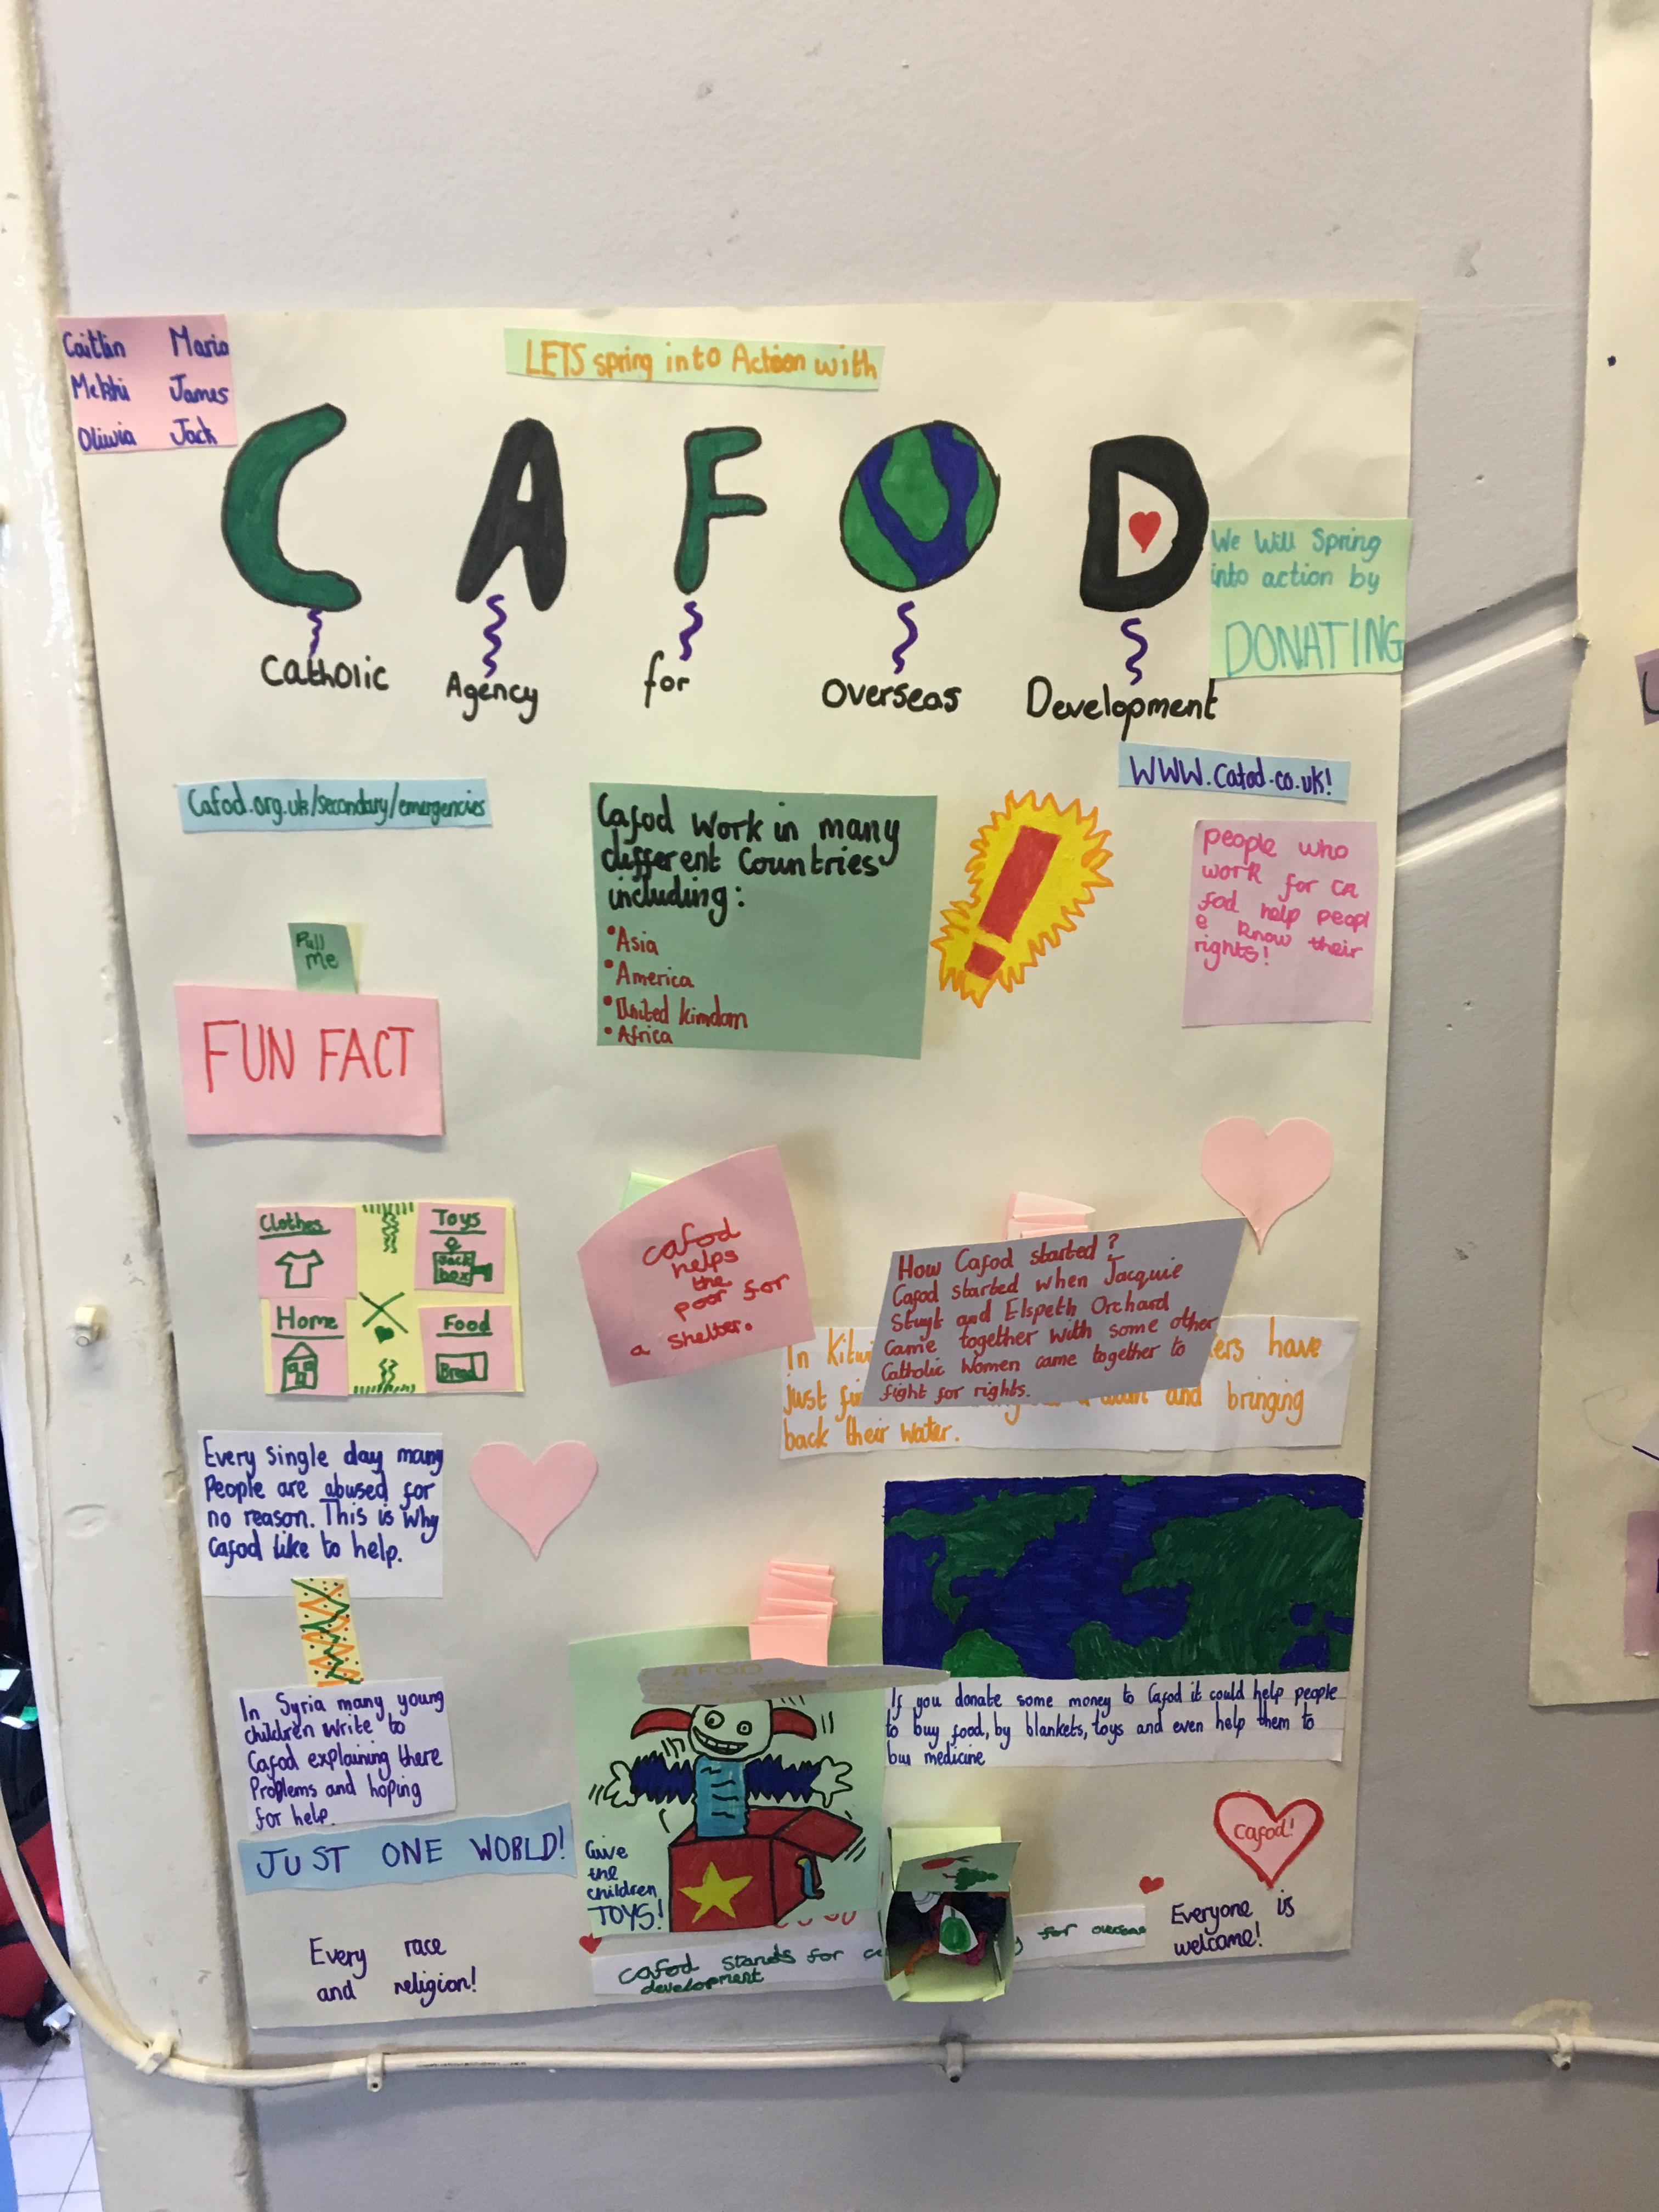 Caitlin Mario
Mekhi James
Oliwia Jack
LETS spring into Action with
CAFOD
Catholic Agency for Overseas Development
We Will Spring
into action by
DONATING
Cafod.org.uk/secondary/emergencies
WWW.Cafod.co.uk!
Cafod Work in many
different Countries
including:
•Asia
•America
•United kimdom
•Africa
people who
work for ca
fod help peopl
e know their
rights!
Pull
me
FUN FACT
Clothes
Toys
Jack
box
Home
Food
Bread
cafod
helps
the
poor for
a shelter.
How Cafod started?
Cafod started when Jacquie
Stuyt and Elspeth Orchard
came together with some other
Catholic Women came together to
fight for rights.
In
have
just
and bringing
back their water.
Every single day many
People are abused for
no reason. This is why
Cafod like to help.
In Syria many young
children write to
Cafod explaining there
Problems and hoping
for help.
JUST ONE WORLD!
Every race
and religion!
Give
the
children
TOYS!
If you donate some money to Cafod it could help people
to buy food, by blankets, toys and even help them to
bus medicine
cafod stands for
for overseas
development
Cafod!
Everyone is
welcome!